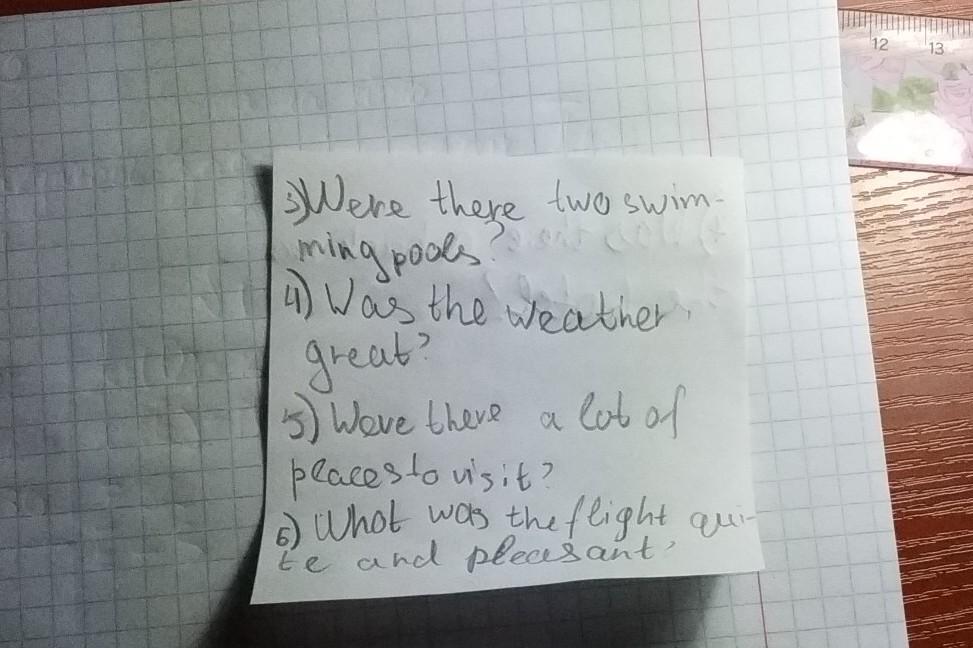 3) Were there two swim-
ming pools?
4) Was the weather
great?
5) Were there a lot of
places to visit?
6) What was the flight qui-
te and pleasant?
12 13